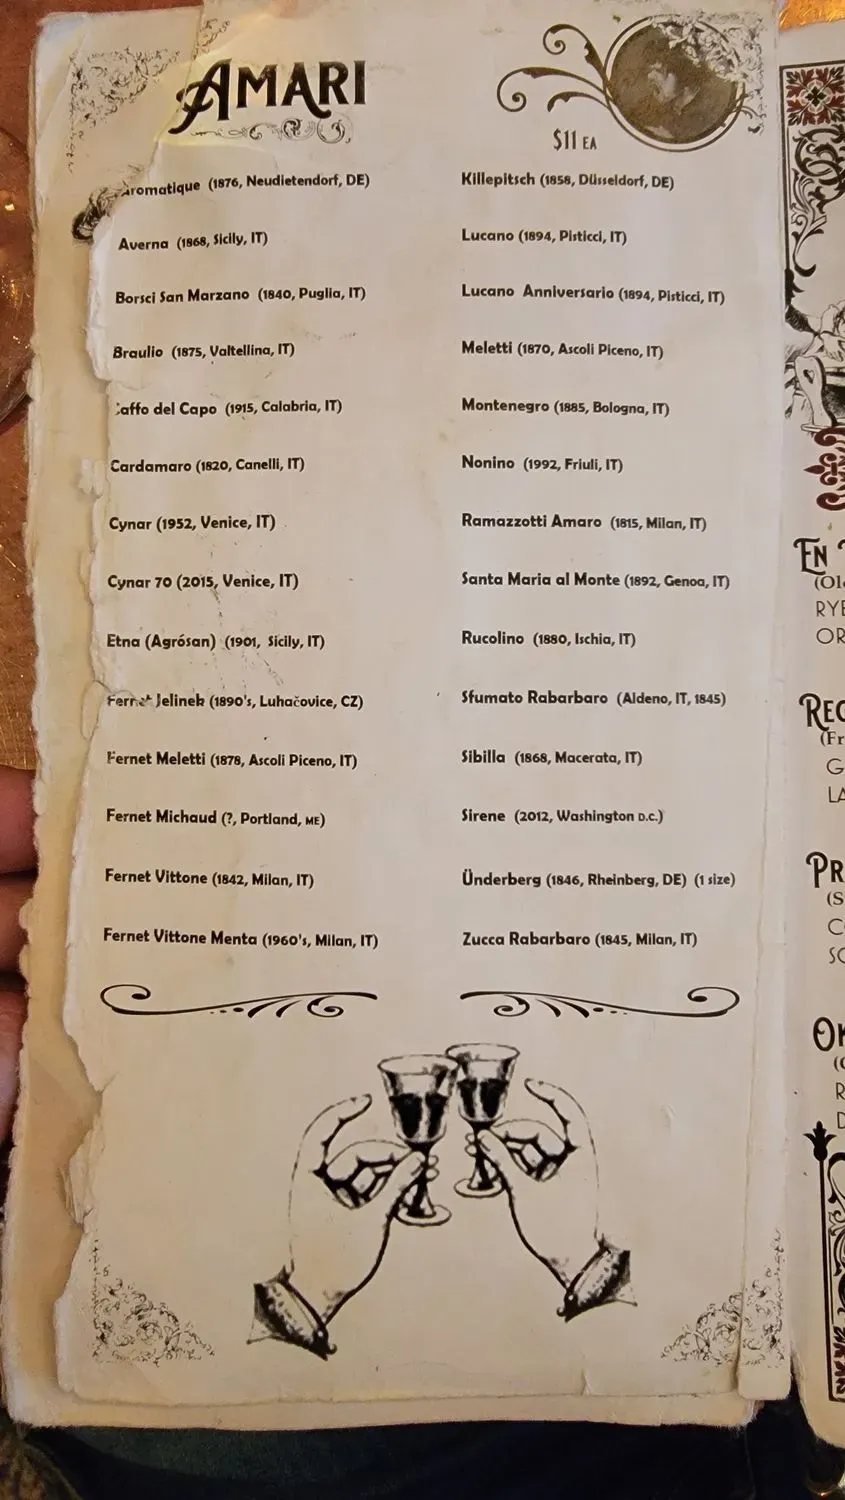 AMARI
$11 EA
Aromatique (1876, Neudietendorf, DE)
Averna (1868, Sicily, IT)
Borsci San Marzano (1840, Puglia, IT)
Braulio (1875, Valtellina, IT)
Caffo del Capo (1915, Calabria, IT)
Cardamaro (1820, Canelli, IT)
Cynar (1952, Venice, IT)
Cynar 70 (2015, Venice, IT)
Etna (Agrósan) (1901, Sicily, IT)
Fernet Jelinek (1890's, Luhačovice, CZ)
Fernet Meletti (1878, Ascoli Piceno, IT)
Fernet Michaud (?, Portland, ME)
Fernet Vittone (1842, Milan, IT)
Fernet Vittone Menta (1960's, Milan, IT)
Killepitsch (1858, Düsseldorf, DE)
Lucano (1894, Pisticci, IT)
Lucano Anniversario (1894, Pisticci, IT)
Meletti (1870, Ascoli Piceno, IT)
Montenegro (1885, Bologna, IT)
Nonino (1992, Friuli, IT)
Ramazzotti Amaro (1815, Milan, IT)
Santa Maria al Monte (1892, Genoa, IT)
Rucolino (1880, Ischia, IT)
Sfumato Rabarbaro (Aldeno, IT, 1845)
Sibilla (1868, Macerata, IT)
Sirene (2012, Washington D.C.)
Ünderberg (1846, Rheinberg, DE) (1 size)
Zucca Rabarbaro (1845, Milan, IT)
EN
RYE